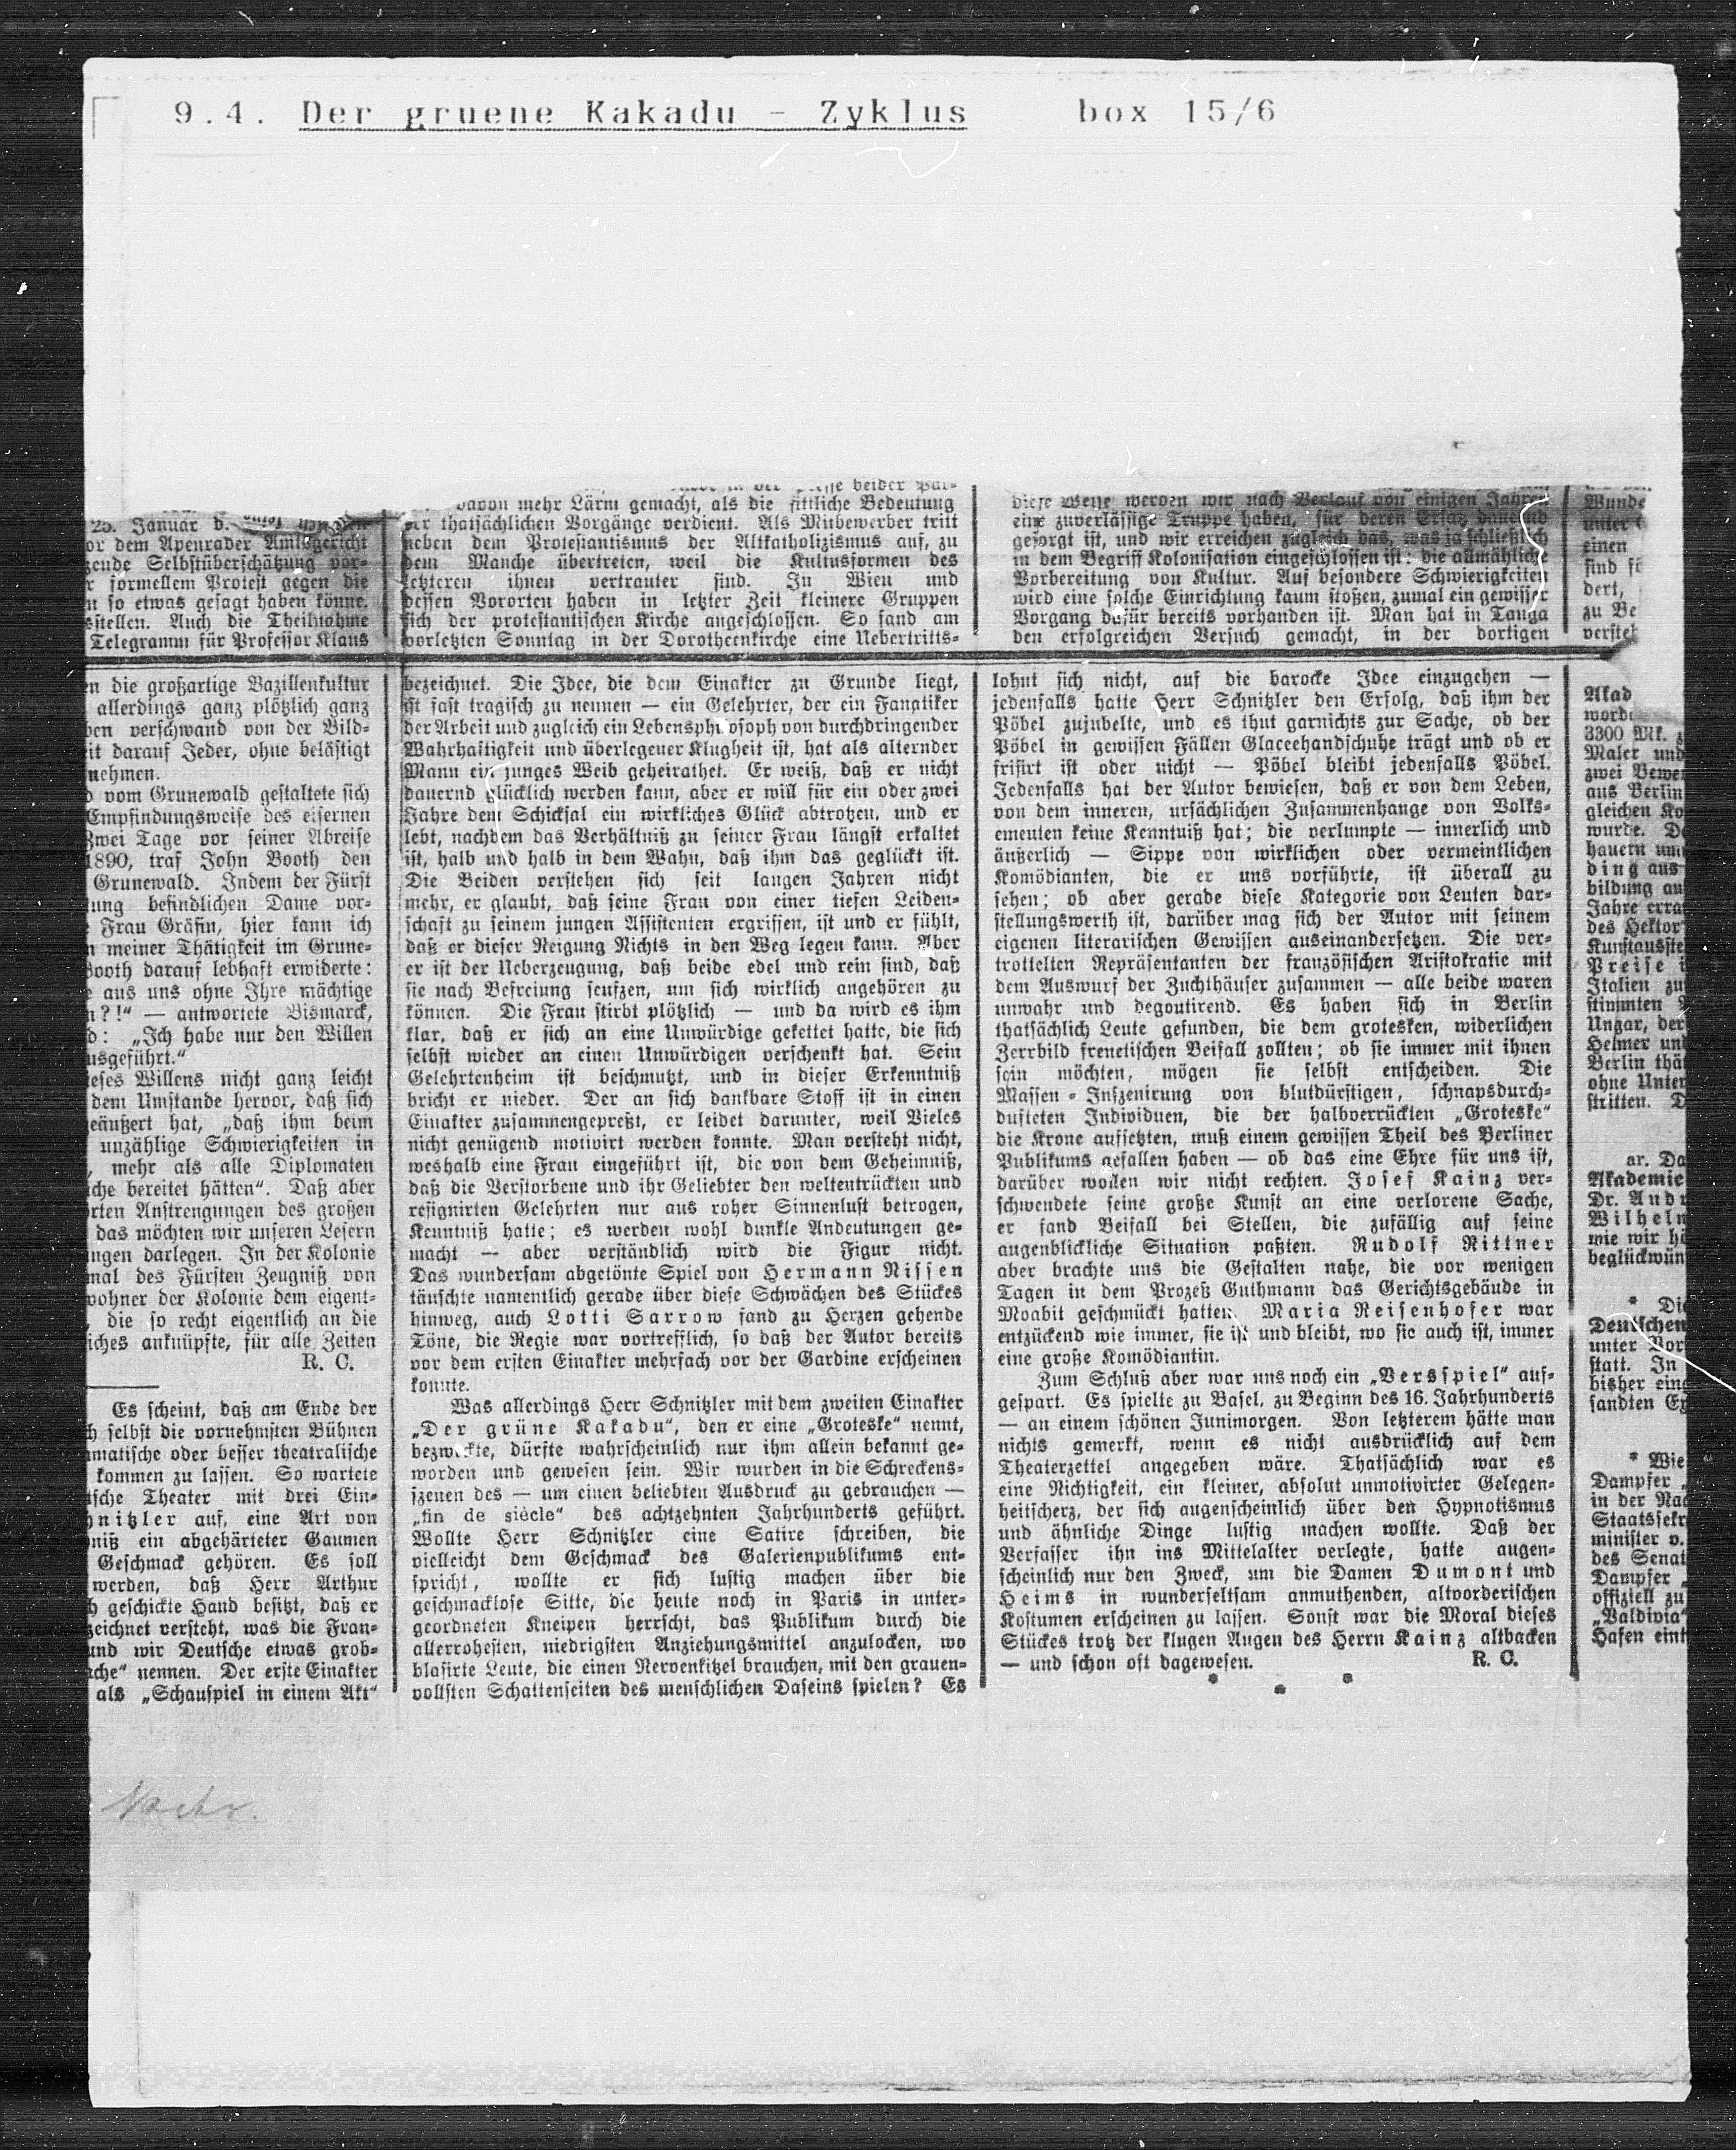 9.4. Der gruene Kakadu - Zyklus box 15/6
25. Januar d.
or dem Apenrader Amtsgericht
zende Selbstüberschätzung vor-
r formellem Protest gegen die
n so etwas gesagt haben könne.
stellen. Auch die Theilnahme
Telegramm für Professor Klaus
beider Par-
davon mehr Lärm gemacht, als die sittliche Bedeutung
der thatsächlichen Vorgänge verdient. Als Mitbewerber tritt
neben dem Protestantismus der Altkatholizismus auf, zu
dem Manche übertreten, weil die Kultusformen des
letzteren ihnen vertrauter sind. In Wien und
dessen Vororten haben in letzter Zeit kleinere Gruppen
sich der protestantischen Kirche angeschlossen. So fand am
vorletzten Sonntag in der Dorotheenkirche eine Uebertritts-
diese Weise werden wir nach Verlauf von einigen Jahren
eine zuverlässige Truppe haben, für deren Ersatz dauernd
gesorgt ist, und wir erreichen zugleich das, was ja schließlich
in dem Begriff Kolonisation eingeschlossen ist: die allmähliche
Vorbereitung von Kultur. Auf besondere Schwierigkeiten
wird eine solche Einrichtung kaum stoßen, zumal ein gewisser
Vorgang dafür bereits vorhanden ist. Man hat in Tanga
den erfolgreichen Versuch gemacht, in der dortigen
Wunde
unter
einen
sind
dert,
zu Be
verste
en die großartige Bazillenkultur
allerdings ganz plötzlich ganz
ben verschwand von der Bild-
it darauf Jeder, ohne belästigt
nehmen.
vom Grunewald gestaltete sich
Empfindungsweise des eisernen
Zwei Tage vor seiner Abreise
1890, traf John Booth den
Grunewald. Indem der Fürst
tung befindlichen Dame vor-
Frau Gräfin, hier kann ich
n meiner Thätigkeit im Grune-
Booth darauf lebhaft erwiderte:
e aus uns ohne Ihre mächtige
n?!“ — antwortete Bismarck,
d: „Ich habe nur den Willen
usgeführt.“
ieses Willens nicht ganz leicht
dem Umstande hervor, daß sich
eäußert hat, „daß ihm beim
unzählige Schwierigkeiten in
, mehr als alle Diplomaten
iche bereitet hätten“. Daß aber
rten Anstrengungen des großen
das möchten wir unseren Lesern
ngen darlegen. In der Kolonie
mal des Fürsten Zeugniß von
wohner der Kolonie dem eigent-
, die so recht eigentlich an die
iches anknüpfte, für alle Zeiten
R. C.
Es scheint, daß am Ende der
h selbst die vornehmsten Bühnen
amatische oder besser theatralische
kommen zu lassen. So wartete
tsche Theater mit drei Ein-
hnitzler auf, eine Art von
niß ein abgehärteter Gaumen
Geschmack gehören. Es soll
werden, daß Herr Arthur
h geschickte Hand besitzt, daß er
zeichnet versteht, was die Fran-
und wir Deutsche etwas grob-
ache“ nennen. Der erste Einakter
als „Schauspiel in einem Akt“
bezeichnet. Die Idee, die dem Einakter zu Grunde liegt,
ist fast tragisch zu nennen — ein Gelehrter, der ein Fanatiker
der Arbeit und zugleich ein Lebensphilosoph von durchdringender
Wahrhaftigkeit und überlegener Klugheit ist, hat als alternder
Mann ein junges Weib geheirathet. Er weiß, daß er nicht
dauernd glücklich werden kann, aber er will für ein oder zwei
Jahre dem Schicksal ein wirkliches Glück abtrotzen, und er
lebt, nachdem das Verhältniß zu seiner Frau längst erkaltet
ist, halb und halb in dem Wahn, daß ihm das geglückt ist.
Die Beiden verstehen sich seit langen Jahren nicht
mehr, er glaubt, daß seine Frau von einer tiefen Leiden-
schaft zu seinem jungen Assistenten ergriffen, ist und er fühlt,
daß er dieser Neigung Nichts in den Weg legen kann. Aber
er ist der Ueberzeugung, daß beide edel und rein sind, daß
sie nach Befreiung seufzen, um sich wirklich angehören zu
können. Die Frau stirbt plötzlich — und da wird es ihm
klar, daß er sich an eine Unwürdige gekettet hatte, die sich
selbst wieder an einen Unwürdigen verschenkt hat. Sein
Gelehrtenheim ist beschmutzt, und in dieser Erkenntniß
bricht er nieder. Der an sich dankbare Stoff ist in einen
Einakter zusammengepreßt, er leidet darunter, weil Vieles
nicht genügend motivirt werden konnte. Man versteht nicht,
weshalb eine Frau eingeführt ist, die von dem Geheimniß,
daß die Verstorbene und ihr Geliebter den weltentrückten und
resignirten Gelehrten nur aus roher Sinnenlust betrogen,
Kenntniß hatte; es werden wohl dunkle Andeutungen ge-
macht — aber verständlich wird die Figur nicht.
Das wundersam abgetönte Spiel von Hermann Nissen
täuschte namentlich gerade über diese Schwächen des Stückes
hinweg, auch Lotti Sarrow fand zu Herzen gehende
Töne, die Regie war vortrefflich, so daß der Autor bereits
vor dem ersten Einakter mehrfach vor der Gardine erscheinen
konnte.
Was allerdings Herr Schnitzler mit dem zweiten Einakter
„Der grüne Kakadu“, den er eine „Groteske“ nennt,
bezweckte, dürfte wahrscheinlich nur ihm allein bekannt ge-
worden und gewesen sein. Wir wurden in die Schreckens-
szenen des — um einen beliebten Ausdruck zu gebrauchen —
„fin de siècle“ des achtzehnten Jahrhunderts geführt.
Wollte Herr Schnitzler eine Satire schreiben, die
vielleicht dem Geschmack des Galerienpublikums ent-
spricht, wollte er sich lustig machen über die
geschmacklose Sitte, die heute noch in Paris in unter-
geordneten Kneipen herrscht, das Publikum durch die
allerrohesten, niedrigsten Anziehungsmittel anzulocken, wo
blasirte Leute, die einen Nervenkitzel brauchen, mit den grauen-
vollsten Schattenseiten des menschlichen Daseins spielen? Es
lohnt sich nicht, auf die barocke Idee einzugehen —
jedenfalls hatte Herr Schnitzler den Erfolg, daß ihm der
Pöbel zujubelte, und es thut garnichts zur Sache, ob der
Pöbel in gewissen Fällen Glaceehandschuhe trägt und ob er
frisirt ist oder nicht — Pöbel bleibt jedenfalls Pöbel.
Jedenfalls hat der Autor bewiesen, daß er von dem Leben,
von dem inneren, ursächlichen Zusammenhange von Volks-
emeuten keine Kenntniß hat; die verlumpte — innerlich und
äußerlich — Sippe von wirklichen oder vermeintlichen
Komödianten, die er uns vorführte, ist überall zu
sehen; ob aber gerade diese Kategorie von Leuten dar-
stellungswerth ist, darüber mag sich der Autor mit seinem
eigenen literarischen Gewissen auseinandersetzen. Die ver-
trottelten Repräsentanten der französischen Aristokratie mit
dem Auswurf der Zuchthäuser zusammen — alle beide waren
unwahr und degoutirend. Es haben sich in Berlin
thatsächlich Leute gefunden, die dem grotesken, widerlichen
Zerrbild frenetischen Beifall zollten; ob sie immer mit ihnen
sein möchten, mögen sie selbst entscheiden. Die
Massen-Inszenirung von blutdürstigen, schnapsdurch-
dufteten Individuen, die der halbverrückten „Groteske“
die Krone aufsetzten, muß einem gewissen Theil des Berliner
Publikums gefallen haben — ob das eine Ehre für uns ist,
darüber wollen wir nicht rechten. Josef Kainz ver-
schwendete seine große Kunst an eine verlorene Sache,
er fand Beifall bei Stellen, die zufällig auf seine
augenblickliche Situation paßten. Rudolf Rittner
aber brachte uns die Gestalten nahe, die vor wenigen
Tagen in dem Prozeß Guthmann das Gerichtsgebäude in
Moabit geschmückt hatten. Maria Reisenhofer war
entzückend wie immer, sie ist und bleibt, wo sie auch ist, immer
eine große Komödiantin.
Zum Schluß aber war uns noch ein „Versspiel“ auf-
gespart. Es spielte zu Basel, zu Beginn des 16. Jahrhunderts
— an einem schönen Junimorgen. Von letzterem hätte man
nichts gemerkt, wenn es nicht ausdrücklich auf dem
Theaterzettel angegeben wäre. Thatsächlich war es
eine Nichtigkeit, ein kleiner, absolut unmotivirter Gelegen-
heitscherz, der sich augenscheinlich über den Hypnotismus
und ähnliche Dinge lustig machen wollte. Daß der
Verfasser ihn ins Mittelalter verlegte, hatte augen-
scheinlich nur den Zweck, um die Damen Dumont und
Heims in wunderseltsam anmuthenden, altvorderischen
Kostumen erscheinen zu lassen. Sonst war die Moral dieses
Stückes trotz der klugen Augen des Herrn Kainz altbacken
— und schon oft dagewesen. R. C.
* * *
Akad
worde
3300 Mk. z
Maler und
zwei Bewe
aus Berlin
gleichen Ko
wurde. De
hauern um
ding aus
bildung au
Jahre erra
des Hektor
Kunstausste
Preise i
Italien zu
stimmten
Ungar, der
Helmer und
Berlin thät
ohne Unter
stritten. D
ar. Da
Akademie
Dr. Andr
Wilheln
wie wir hö
beglückwün
* Die
Deutschen
unter Vor
statt. In
bisher eing
sandten Ex
* Wie
Dampfer „
in der Nac
Staatssekr
minister v.
des Senat
Dampfer „
offiziell zu
„Valdivia“
Hafen eint